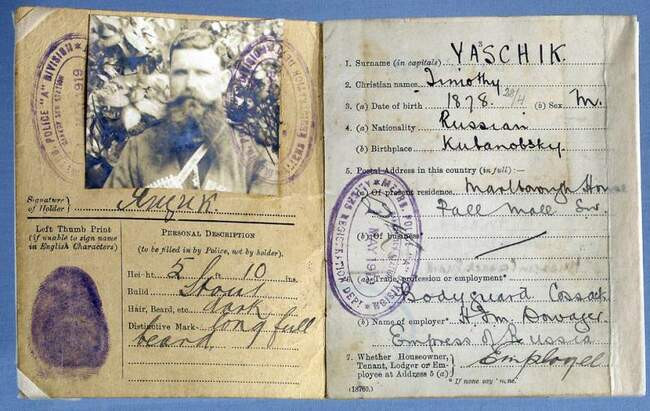 POLICE "A" DIVISION
1919
Signature of Holder
Left Thumb Print
(if unable to sign name
in English Characters)
PERSONAL DESCRIPTION
(to be filled in by Police, not by holder).
Height 5 ft. 10 ins.
Build Stout
Hair, Beard, etc. dark
Distinctive Mark long full
beard.
1. Surname (in capitals) YASCHIK.
2. Christian name Timothy
3. (a) Date of birth 1878. 28/4 (b) Sex M.
4. (a) Nationality Russian
(b) Birthplace Kubanobsky.
5. Postal Address in this country (in full) :—
(a) Of present residence. Marlborough House
Pall Mall S.W.
(b) Of business
REGISTRATION DEPT
MAY 1919
(a) Trade, profession or employment*
Bodyguard Cossack
(b) Name of employer* H.I.M. Dowager
Empress of Russia
7. Whether Householder, Tenant, Lodger or Employee at Address 5 (a) Employee
* If none say "none."
(18760.)